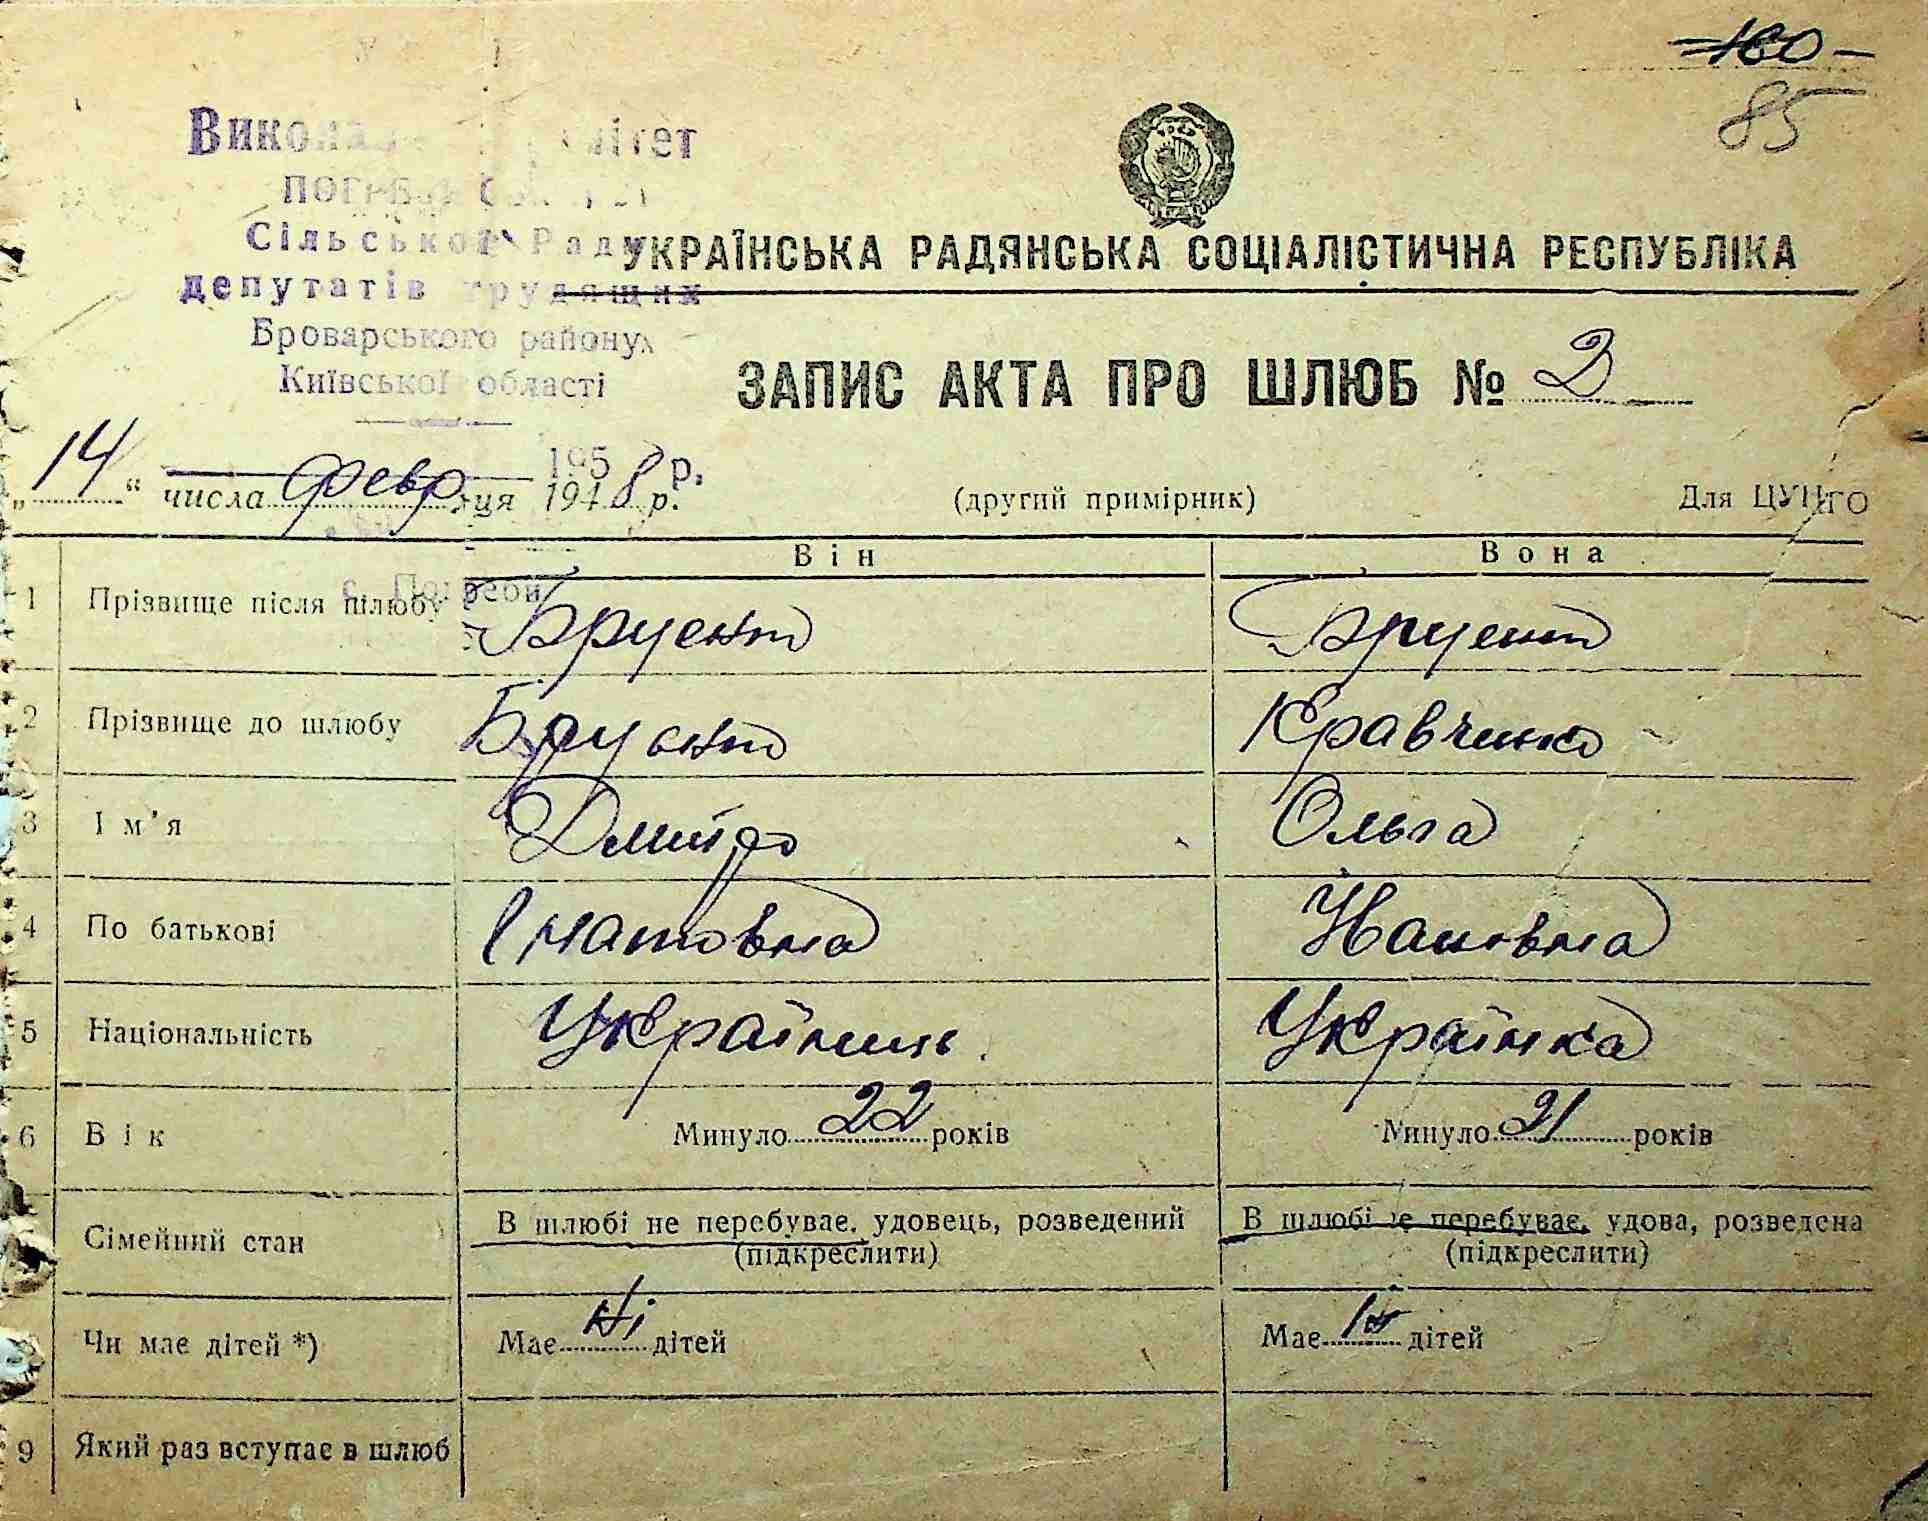 160
85
Виконавчий комітет
Сільської Ради
депутатів трудящих
Броварського району
Київської області
УКРАЇНСЬКА РАДЯНСЬКА СОЦІАЛІСТИЧНА РЕСПУБЛІКА
ЗАПИС АКТА ПРО ШЛЮБ № 2
1958 р.
„14“ числа февр ця 1948 р.
(другий примірник)
Для ЦУНГО
Він Вона
с. Погреби
1 Прізвище після шлюбу
2 Прізвище до шлюбу Кравченко
3 Ім'я Дмитро Ольга
4 По батькові
5 Національність Українець Українка
6 Вік Минуло 22 років Минуло 21 років
Сімейний стан В шлюбі не перебуває, удовець, розведений В шлюбі не перебуває, удова, розведена
(підкреслити) (підкреслити)
Чи має дітей *) Має ні дітей Має дітей
9 Який раз вступає в шлюб